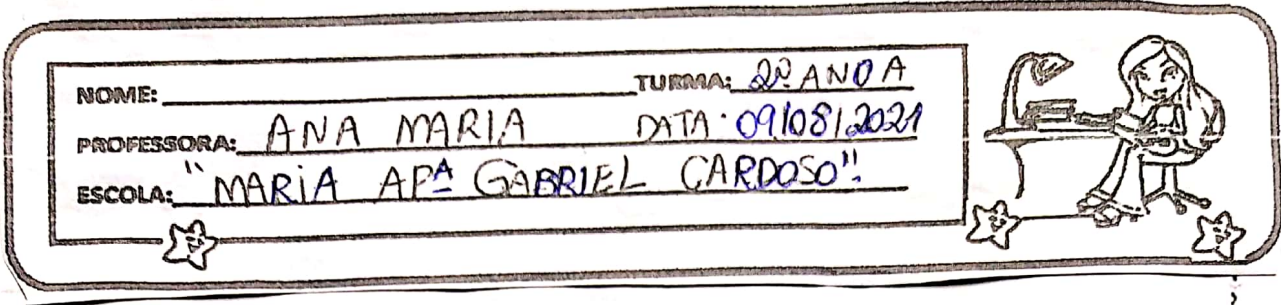 NOME: TURMA: 2º ANO A
PROFESSORA: ANA MARIA DATA: 09/08/2021
ESCOLA: "MARIA APª GABRIEL CARDOSO".